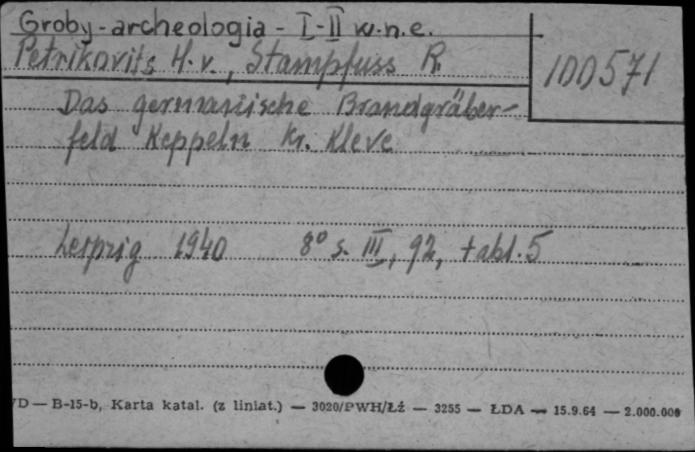 Groby-archeologia - I-II w.n.e.
Petrikovits H. v., Stampfuss R.
100571
Das germanische Brandgräber-
feld Keppeln Kr. Kleve
Leipzig 1940 8° s. III, 92, tabl. 5
D — B-15-b, Karta katal. (z liniat.) — 3020/PWH/Łź — 3255 — ŁDA — 15.9.64 — 2.000.000